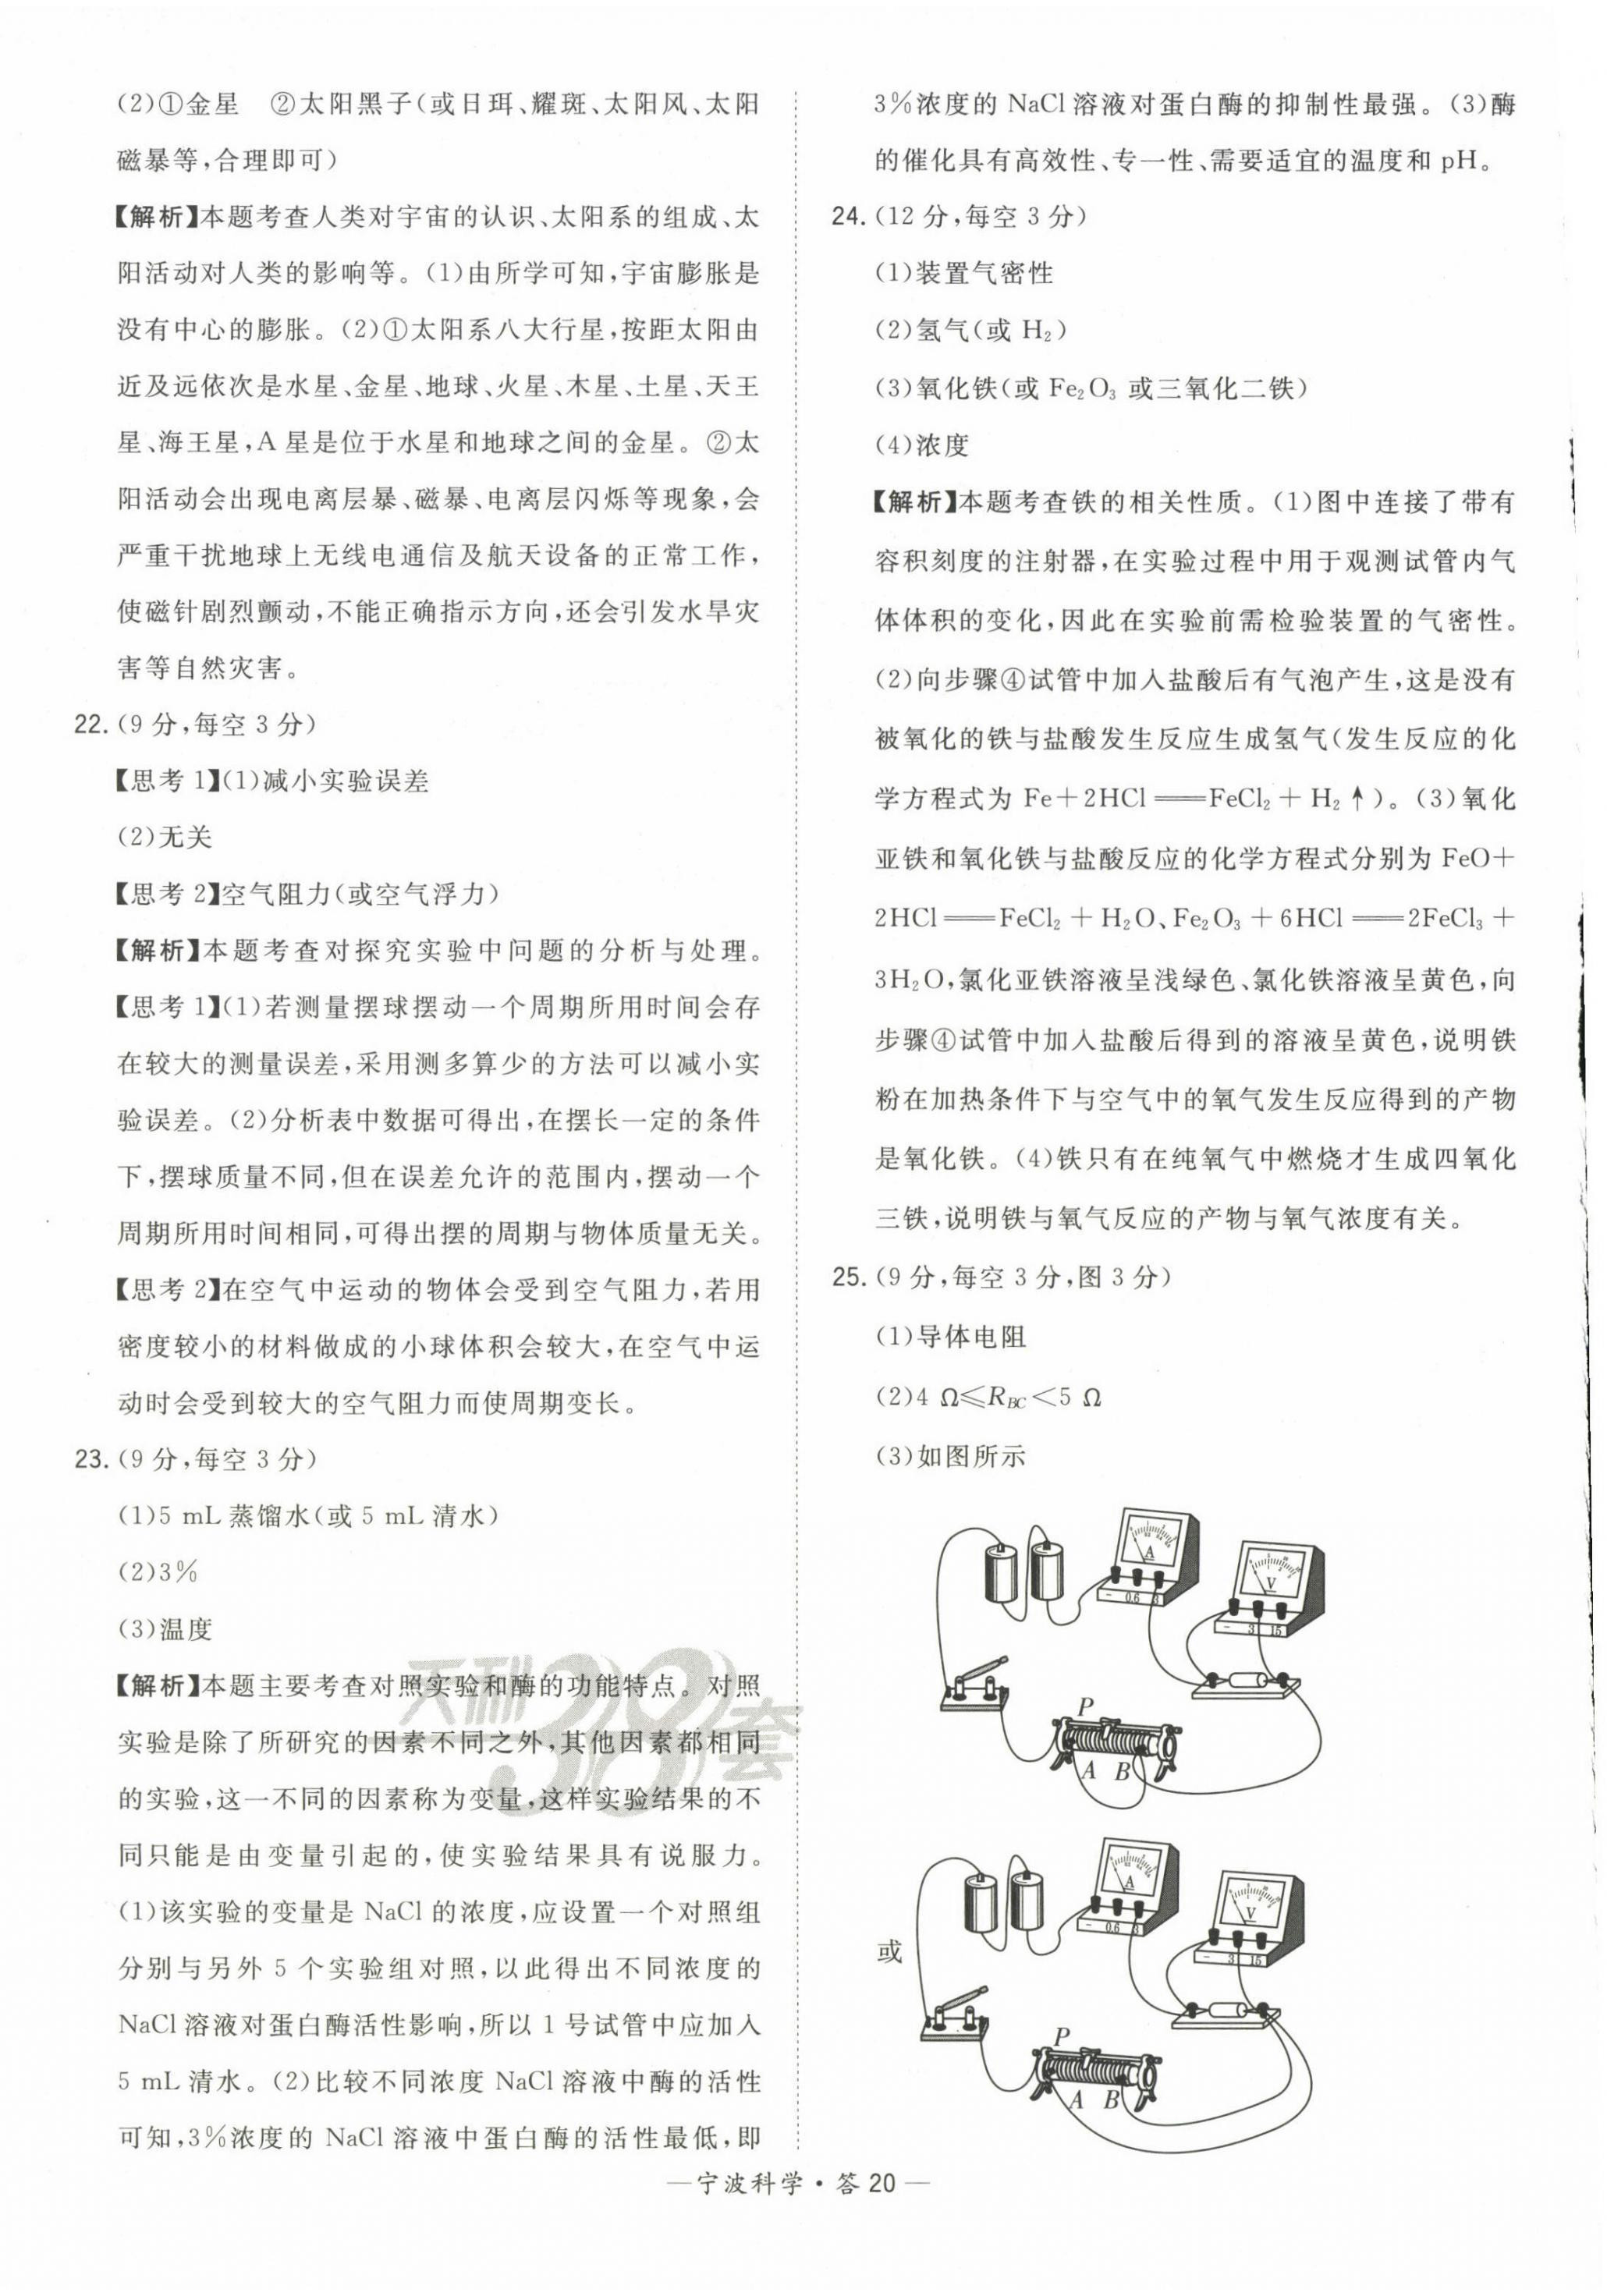 (2)①金星　②太阳黑子(或日珥、耀斑、太阳风、太阳
磁暴等,合理即可)
【解析】本题考查人类对宇宙的认识、太阳系的组成、太
阳活动对人类的影响等。(1)由所学可知,宇宙膨胀是
没有中心的膨胀。(2)①太阳系八大行星,按距太阳由
近及远依次是水星、金星、地球、火星、木星、土星、天王
星、海王星,A 星是位于水星和地球之间的金星。②太
阳活动会出现电离层暴、磁暴、电离层闪烁等现象,会
严重干扰地球上无线电通信及航天设备的正常工作,
使磁针剧烈颤动,不能正确指示方向,还会引发水旱灾
害等自然灾害。
22.(9 分,每空 3 分)
【思考 1】(1)减小实验误差
(2)无关
【思考 2】空气阻力(或空气浮力)
【解析】本题考查对探究实验中问题的分析与处理。
【思考 1】(1)若测量摆球摆动一个周期所用时间会存
在较大的测量误差,采用测多算少的方法可以减小实
验误差。(2)分析表中数据可得出,在摆长一定的条件
下,摆球质量不同,但在误差允许的范围内,摆动一个
周期所用时间相同,可得出摆的周期与物体质量无关。
【思考 2】在空气中运动的物体会受到空气阻力,若用
密度较小的材料做成的小球体积会较大,在空气中运
动时会受到较大的空气阻力而使周期变长。
23.(9 分,每空 3 分)
(1)5 mL 蒸馏水(或 5 mL 清水)
(2)3%
(3)温度
【解析】本题主要考查对照实验和酶的功能特点。对照
实验是除了所研究的因素不同之外,其他因素都相同
的实验,这一不同的因素称为变量,这样实验结果的不
同只能是由变量引起的,使实验结果具有说服力。
(1)该实验的变量是 NaCl 的浓度,应设置一个对照组
分别与另外 5 个实验组对照,以此得出不同浓度的
NaCl 溶液对蛋白酶活性影响,所以 1 号试管中应加入
5 mL 清水。(2)比较不同浓度 NaCl 溶液中酶的活性
可知,3%浓度的 NaCl 溶液中蛋白酶的活性最低,即
天利38套
3%浓度的 NaCl 溶液对蛋白酶的抑制性最强。(3)酶
的催化具有高效性、专一性、需要适宜的温度和 pH。
24.(12 分,每空 3 分)
(1)装置气密性
(2)氢气(或 H₂)
(3)氧化铁(或 Fe₂O₃ 或三氧化二铁)
(4)浓度
【解析】本题考查铁的相关性质。(1)图中连接了带有
容积刻度的注射器,在实验过程中用于观测试管内气
体体积的变化,因此在实验前需检验装置的气密性。
(2)向步骤④试管中加入盐酸后有气泡产生,这是没有
被氧化的铁与盐酸发生反应生成氢气(发生反应的化
学方程式为 Fe＋2HCl══FeCl₂＋H₂↑)。(3)氧化
亚铁和氧化铁与盐酸反应的化学方程式分别为 FeO＋
2HCl══FeCl₂＋H₂O、Fe₂O₃＋6HCl══2FeCl₃＋
3H₂O,氯化亚铁溶液呈浅绿色、氯化铁溶液呈黄色,向
步骤④试管中加入盐酸后得到的溶液呈黄色,说明铁
粉在加热条件下与空气中的氧气发生反应得到的产物
是氧化铁。(4)铁只有在纯氧气中燃烧才生成四氧化
三铁,说明铁与氧气反应的产物与氧气浓度有关。
25.(9 分,每空 3 分,图 3 分)
(1)导体电阻
(2)4 Ω≤R_BC<5 Ω
(3)如图所示
A
－ 0.6 3
V
－ 3 15
P
A B
或
A
－ 0.6 3
V
－ 3 15
P
A B
—宁波科学·答 20—